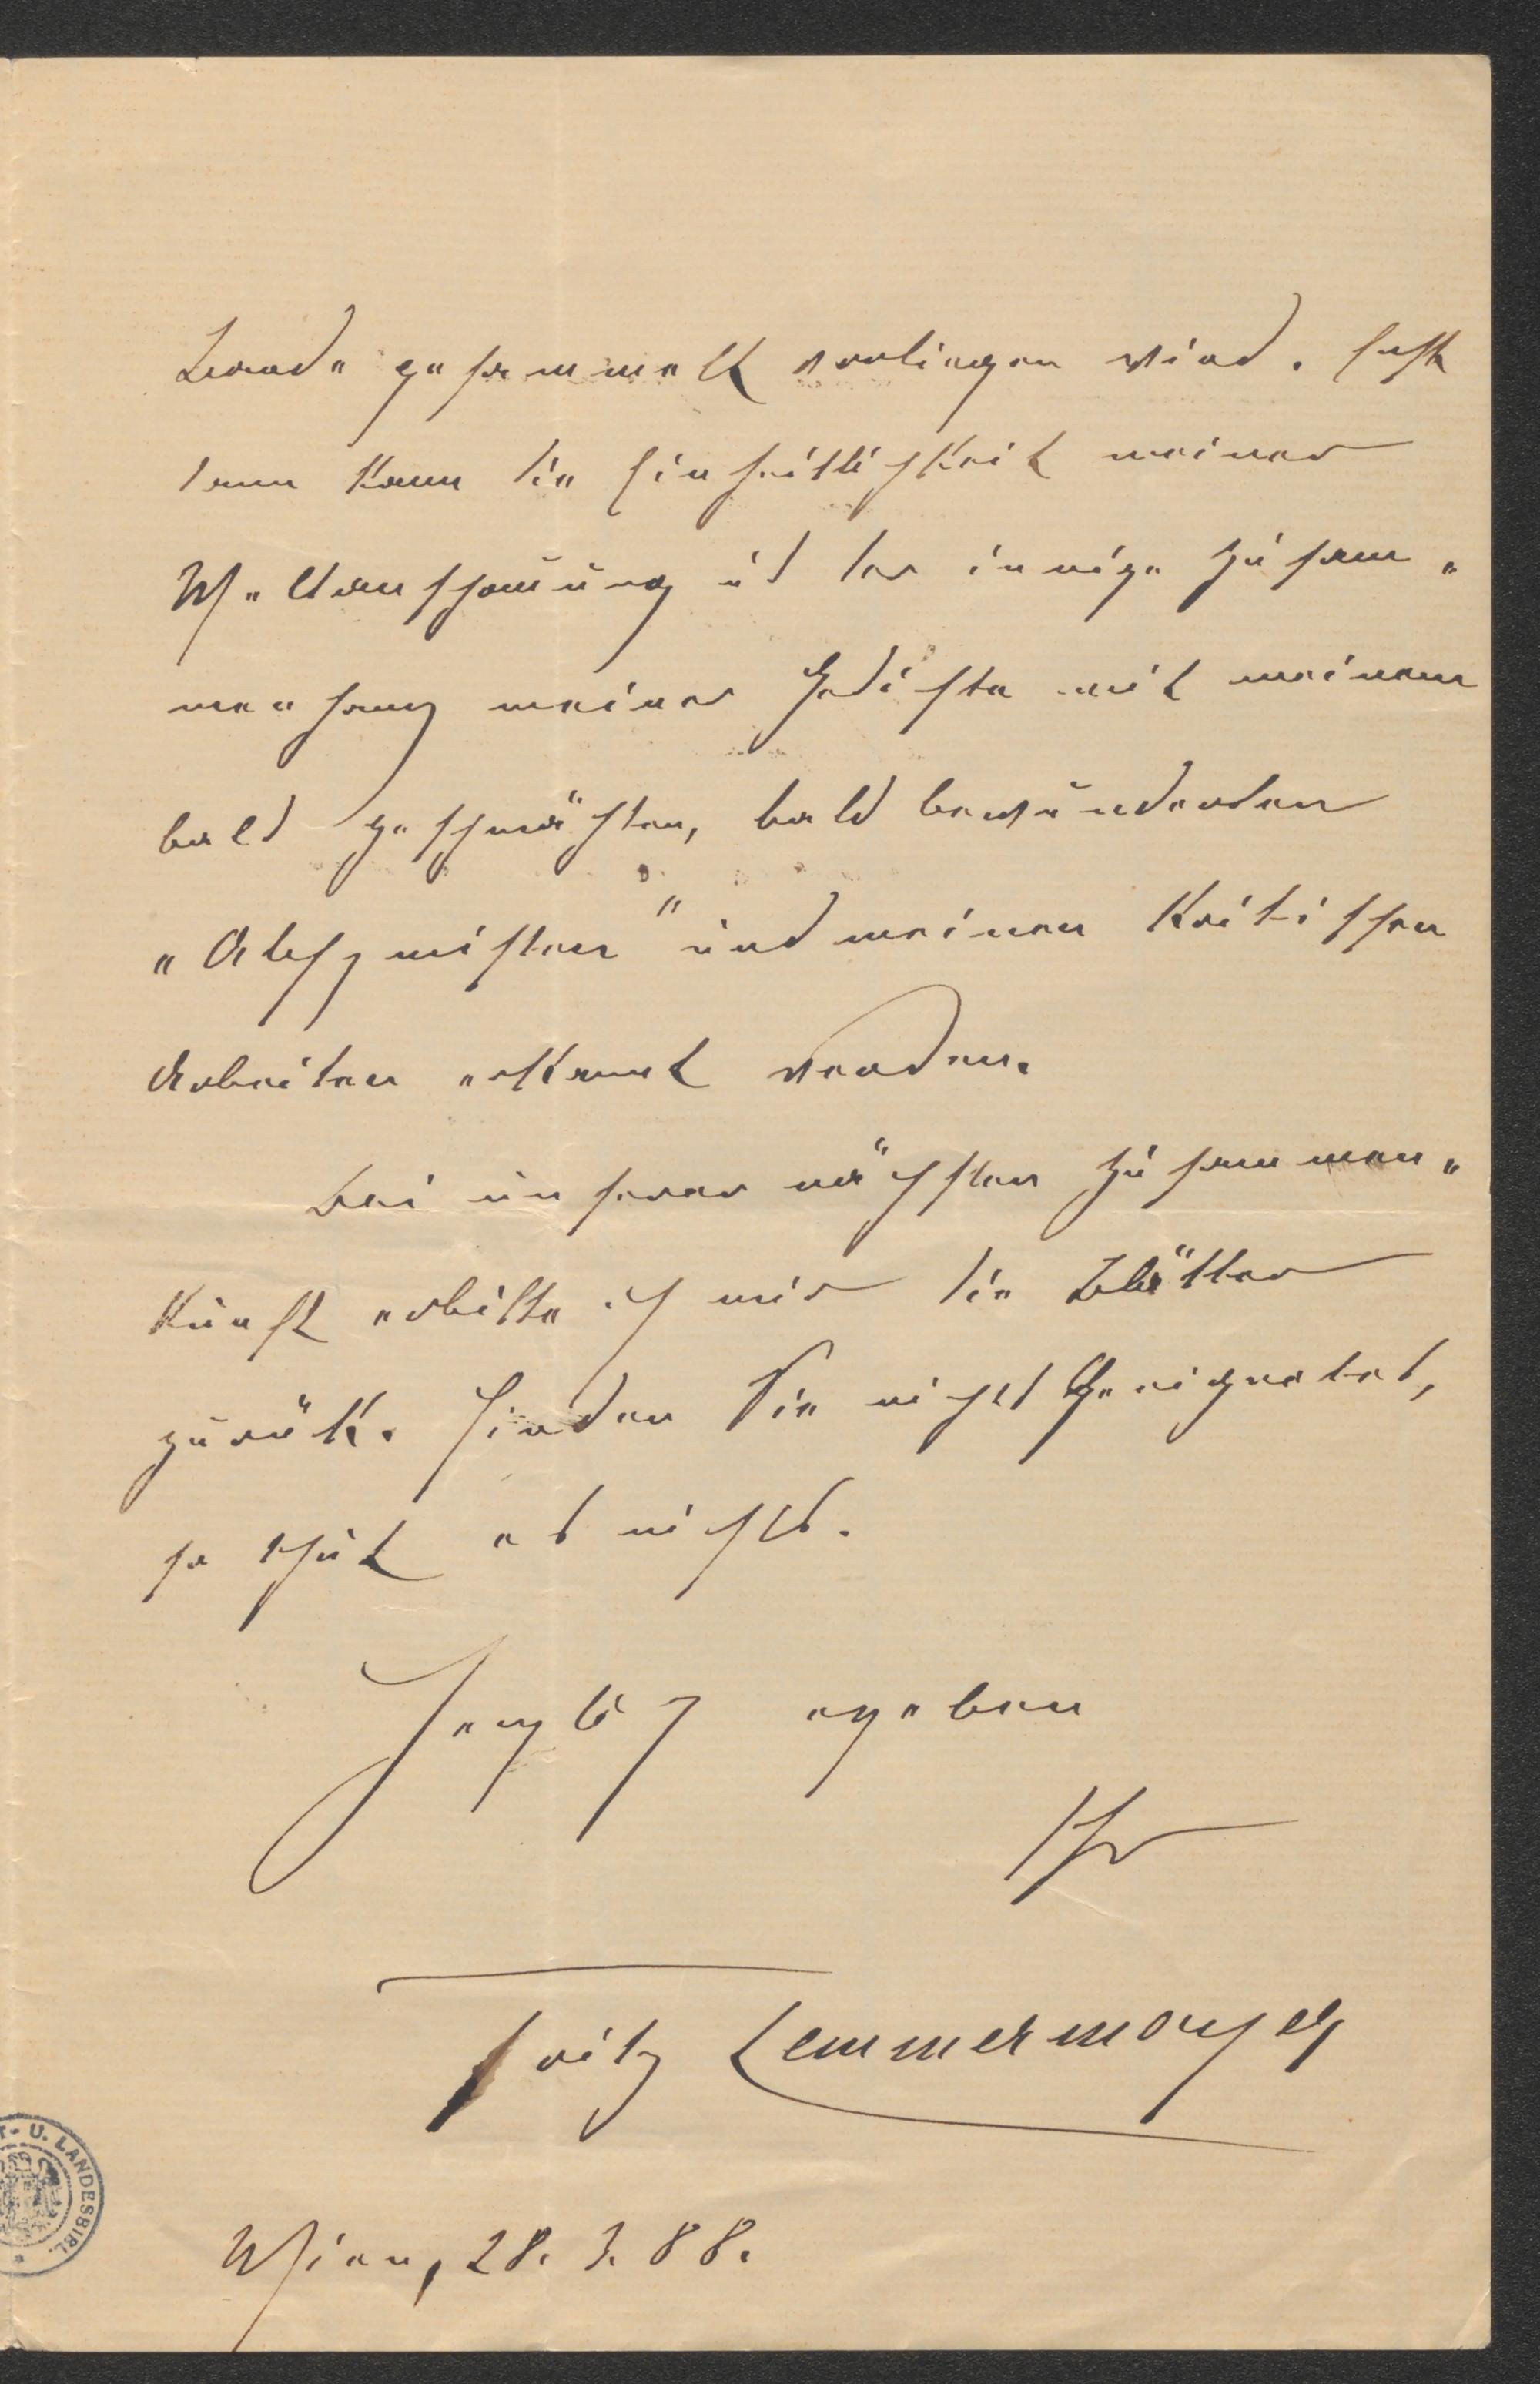 Bande gesammelt vorliegen wird. Erst
dann kann die Einheitlichkeit meiner
Weltanschauung u d der innige Zusam„
menhang meiner Gedichte mit meinem
bald geschmähten, bald bewunderten
„Alchymisten" und meinen kritischen
Arbeiten erkannt werden.
Bei unserer nächsten Zusammen„
kunft erbitte ich mir die Blätter
zurück. Finden Sie nichts Geeignetes,
so thut es nichts.
Herzlich ergeben
Ihr
Fritz Lemmermayer
Wien, 28. 3. 88.
T- U. LANDESBIBL.